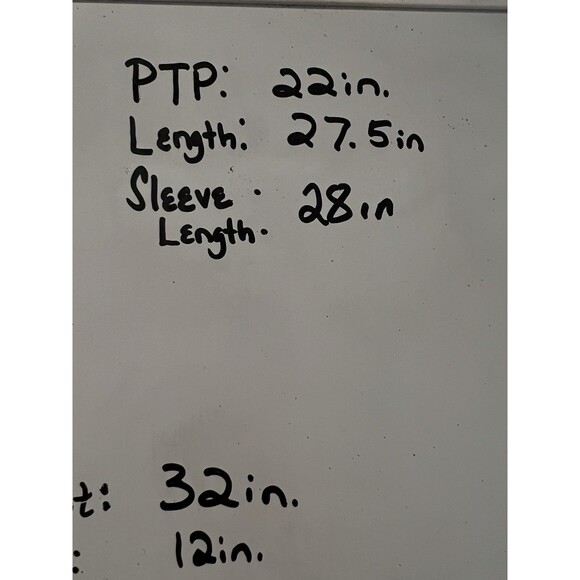 PTP: 22in.
Length: 27.5in
Sleeve
Length: 28in
t: 32in.
: 12in.